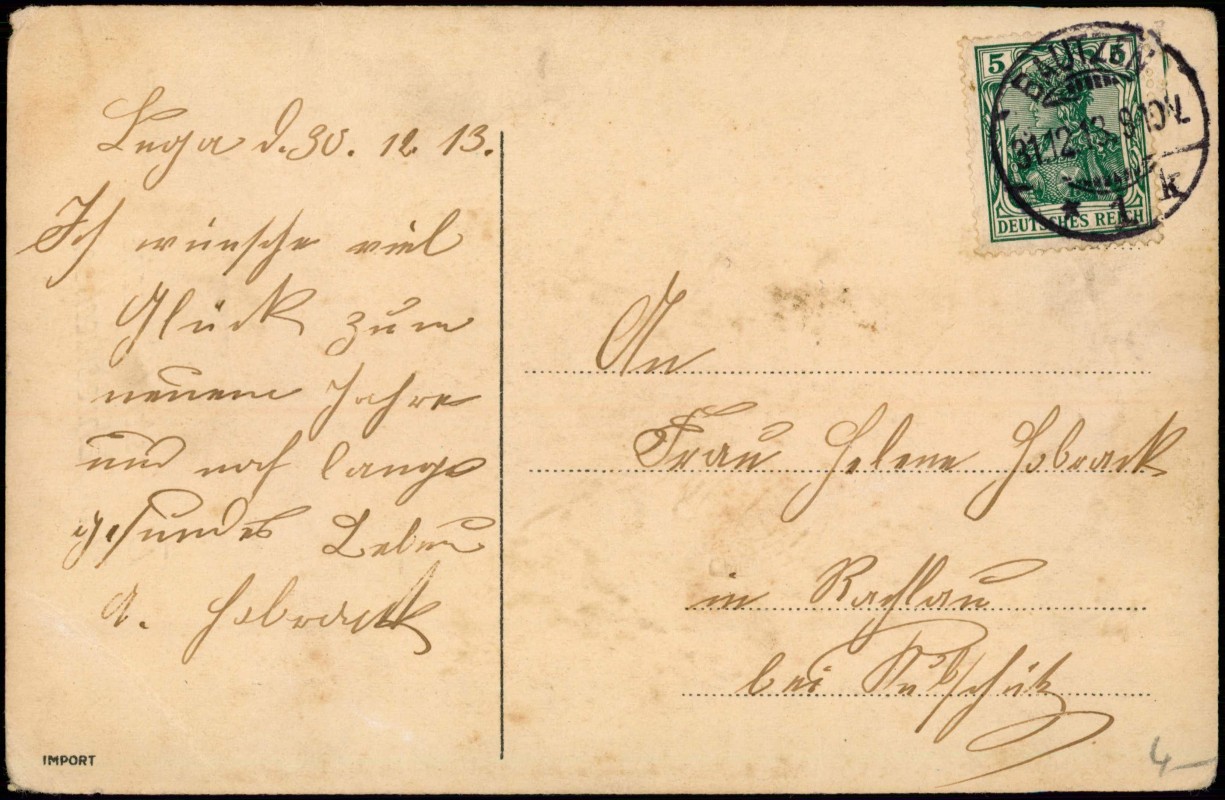 Luga d. 30. 12. 13.
Ich wünsche viel
Glück zum
neuen Jahre
und noch lange
gesundes Leben
A. Hobrack
IMPORT
5 5
DEUTSCHES REICH
BAUTZEN
31.12.13. 9-10V.
* 1 k
An
Frau Helene Hobrack
in Rachlau
bei Kubschütz
4